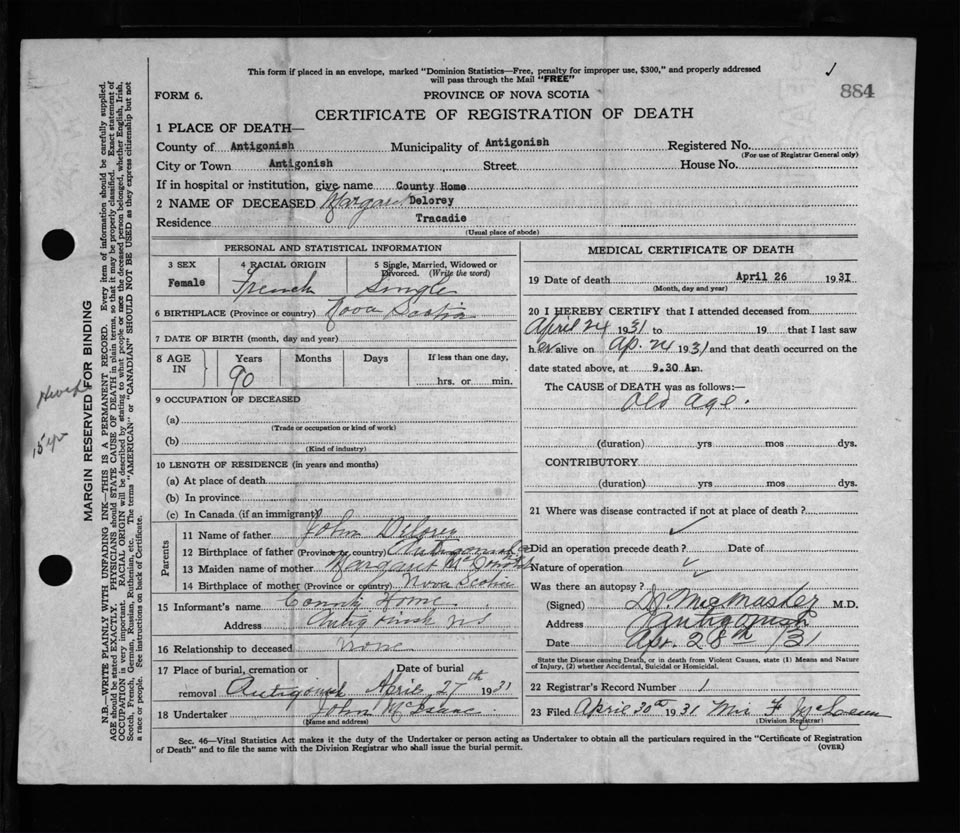 This form if placed in an envelope, marked "Dominion Statistics—Free, penalty for improper use, $300," and properly addressed
will pass through the Mail "FREE"
884
FORM 6.
PROVINCE OF NOVA SCOTIA
CERTIFICATE OF REGISTRATION OF DEATH
1 PLACE OF DEATH—
County of Antigonish Municipality of Antigonish Registered No.
(For use of Registrar General only)
City or Town Antigonish Street House No.
If in hospital or institution, give name County Home
2 NAME OF DECEASED Margaret Delorey
Residence Tracadie
(Usual place of abode)
PERSONAL AND STATISTICAL INFORMATION
3 SEX Female
4 RACIAL ORIGIN French
5 Single, Married, Widowed or Divorced. (Write the word) Single
6 BIRTHPLACE (Province or country) Nova Scotia
7 DATE OF BIRTH (month, day and year)
8 AGE IN Years Months Days If less than one day,
90 hrs. or min.
9 OCCUPATION OF DECEASED
(a)
(Trade or occupation or kind of work)
(b)
(Kind of industry)
10 LENGTH OF RESIDENCE (in years and months)
(a) At place of death
(b) In province
(c) In Canada (if an immigrant)
Parents
11 Name of father John Delorey
12 Birthplace of father (Province or country) Antigonish Co
13 Maiden name of mother Margaret McDonald
14 Birthplace of mother (Province or country) Nova Scotia
15 Informant's name County Home
Address Antigonish NS
16 Relationship to deceased none
17 Place of burial, cremation or Date of burial
removal Antigonish April 27th 1931
18 Undertaker John McIsaac
(Name and address)
MEDICAL CERTIFICATE OF DEATH
19 Date of death April 26 1931
(Month, day and year)
20 I HEREBY CERTIFY that I attended deceased from
April 24 1931 to 19 that I last saw
her alive on Ap. 24 1931 and that death occurred on the
date stated above, at 9.30 Am.
The CAUSE of DEATH was as follows:—
Old Age.
(duration) yrs mos dys.
CONTRIBUTORY
(duration) yrs mos dys.
21 Where was disease contracted if not at place of death?
Did an operation precede death? Date of
Nature of operation
Was there an autopsy?
(Signed) D. MacMaster M.D.
Address Antigonish
Date Apr. 28th /31
State the Disease causing Death, or in death from Violent Causes, state (1) Means and Nature
of Injury, (2) whether Accidental, Suicidal or Homicidal.
22 Registrar's Record Number 1
23 Filed April 30th 1931 Mrs F
(Division Registrar)
Sec. 46—Vital Statistics Act makes it the duty of the Undertaker or person acting as Undertaker to obtain all the particulars required in the "Certificate of Registration
of Death" and to file the same with the Division Registrar who shall issue the burial permit.
(OVER)
MARGIN RESERVED FOR BINDING
N.B.—WRITE PLAINLY WITH UNFADING INK—THIS IS A PERMANENT RECORD. Every item of information should be carefully supplied.
AGE should be stated EXACTLY. PHYSICIANS should STATE CAUSE OF DEATH in plain terms, so that it may be properly classified. Exact statement of
OCCUPATION is very important. RACIAL ORIGIN will be described by stating to what people or race the deceased person belonged, whether English, Irish,
Scotch, French, German, Russian, Ruthenian, etc. The terms "AMERICAN" or "CANADIAN" SHOULD NOT BE USED as they express citizenship but not
a race or people. See instructions on back of Certificate.
15 yr